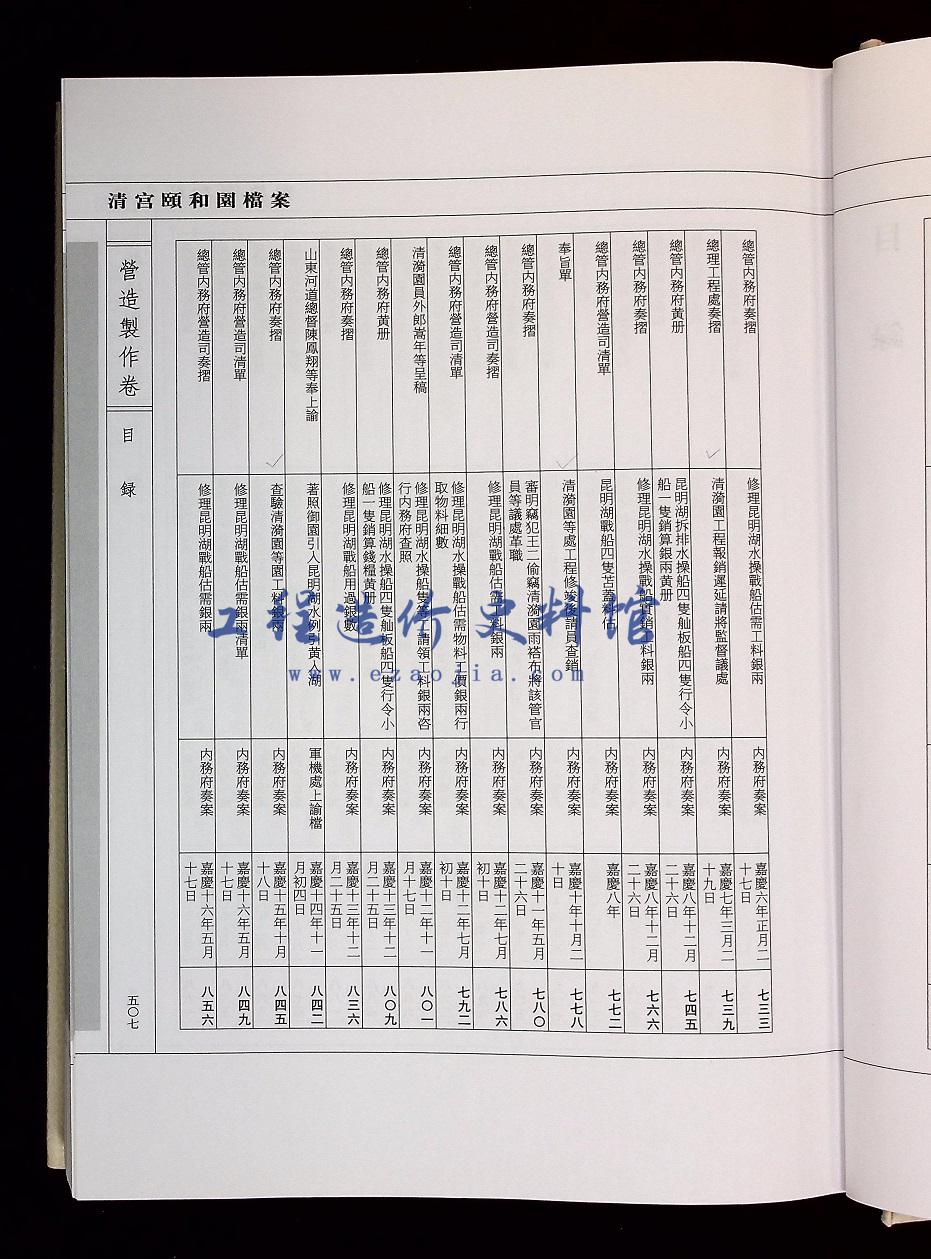 清宮頤和園檔案
總管内務府奏摺
修理昆明湖水操戰船估需工料銀兩
内務府奏案
嘉慶六年正月二
十七日
七三三
總理工程處奏摺
清漪園工程報銷遲延請將監督議處
内務府奏案
嘉慶七年三月二
十九日
七三九
總管内務府黄册
昆明湖拆排水操船四隻舢板船四隻行令小
船一隻銷算銀兩黄册
内務府奏案
嘉慶八年十二月
二十六日
七四五
總管内務府奏摺
修理昆明湖水操戰船實銷工料銀兩
内務府奏案
嘉慶八年十二月
二十六日
七六六
總管内務府營造司清單
昆明湖戰船四隻苫蓋料估
内務府奏案
嘉慶八年
七七二
奉旨單
清漪園等處工程修竣後請員查銷
内務府奏案
嘉慶十年十月二
十日
七七八
總管内務府奏摺
審明竊犯王二偷竊清漪園雨褡布將該管官
員等議處革職
内務府奏案
嘉慶十一年五月
二十六日
七八〇
總管内務府營造司奏摺
修理昆明湖戰船估需工料銀兩
内務府奏案
嘉慶十二年七月
初十日
七八六
總管内務府營造司清單
修理昆明湖水操戰船估需物料工價銀兩行
取物料細數
内務府奏案
嘉慶十二年七月
初十日
七九二
清漪園員外郎嵩年等呈稿
修理昆明湖水操船隻等工請領工料銀兩咨
行内務府查照
内務府奏案
嘉慶十二年十一
月十七日
八〇一
總管内務府黄册
修理昆明湖水操船四隻舢板船四隻行令小
船一隻銷算錢糧黄册
内務府奏案
嘉慶十三年十二
月二十五日
八〇九
總管内務府奏摺
修理昆明湖戰船用過銀數
内務府奏案
嘉慶十三年十二
月二十五日
八三六
山東河道總督陳鳳翔等奉上諭
著照御園引入昆明湖水例引黄入湖
軍機處上諭檔
嘉慶十四年十一
月初四日
八四二
總管内務府奏摺
查驗清漪園等園工料銀兩
内務府奏案
嘉慶十五年十月
十八日
八四五
總管内務府營造司清單
修理昆明湖戰船估需銀兩清單
内務府奏案
嘉慶十六年五月
十七日
八四九
總管内務府營造司奏摺
修理昆明湖戰船估需銀兩
内務府奏案
嘉慶十六年五月
十七日
八五六
營造製作卷
目録
五〇七
工程造价史料馆
www.ezaojia.com